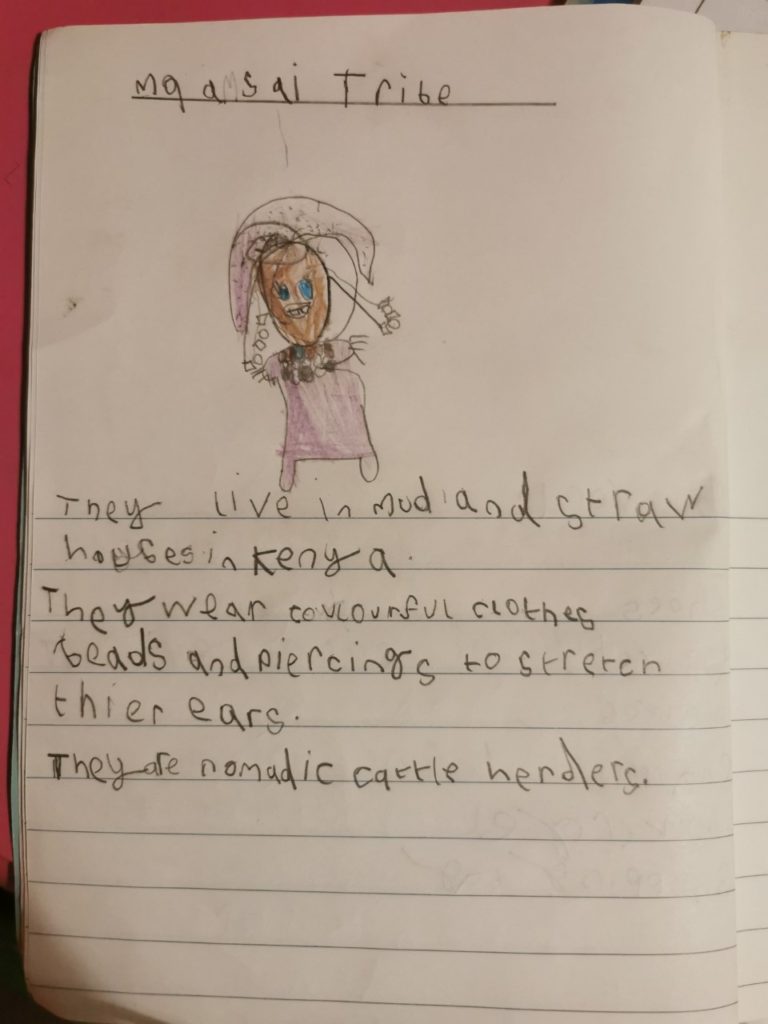 Maasai Tribe
They live in mud and straw
houses in Kenya.
They wear coulourful clothes
beads and piercings to stretch
thier ears.
They are nomadic cattle herders.